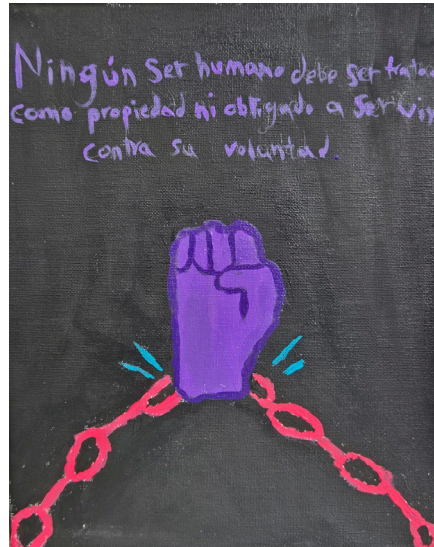 Ningún Ser humano debe ser tratado
como propiedad ni obligado a Servir
contra su voluntad.